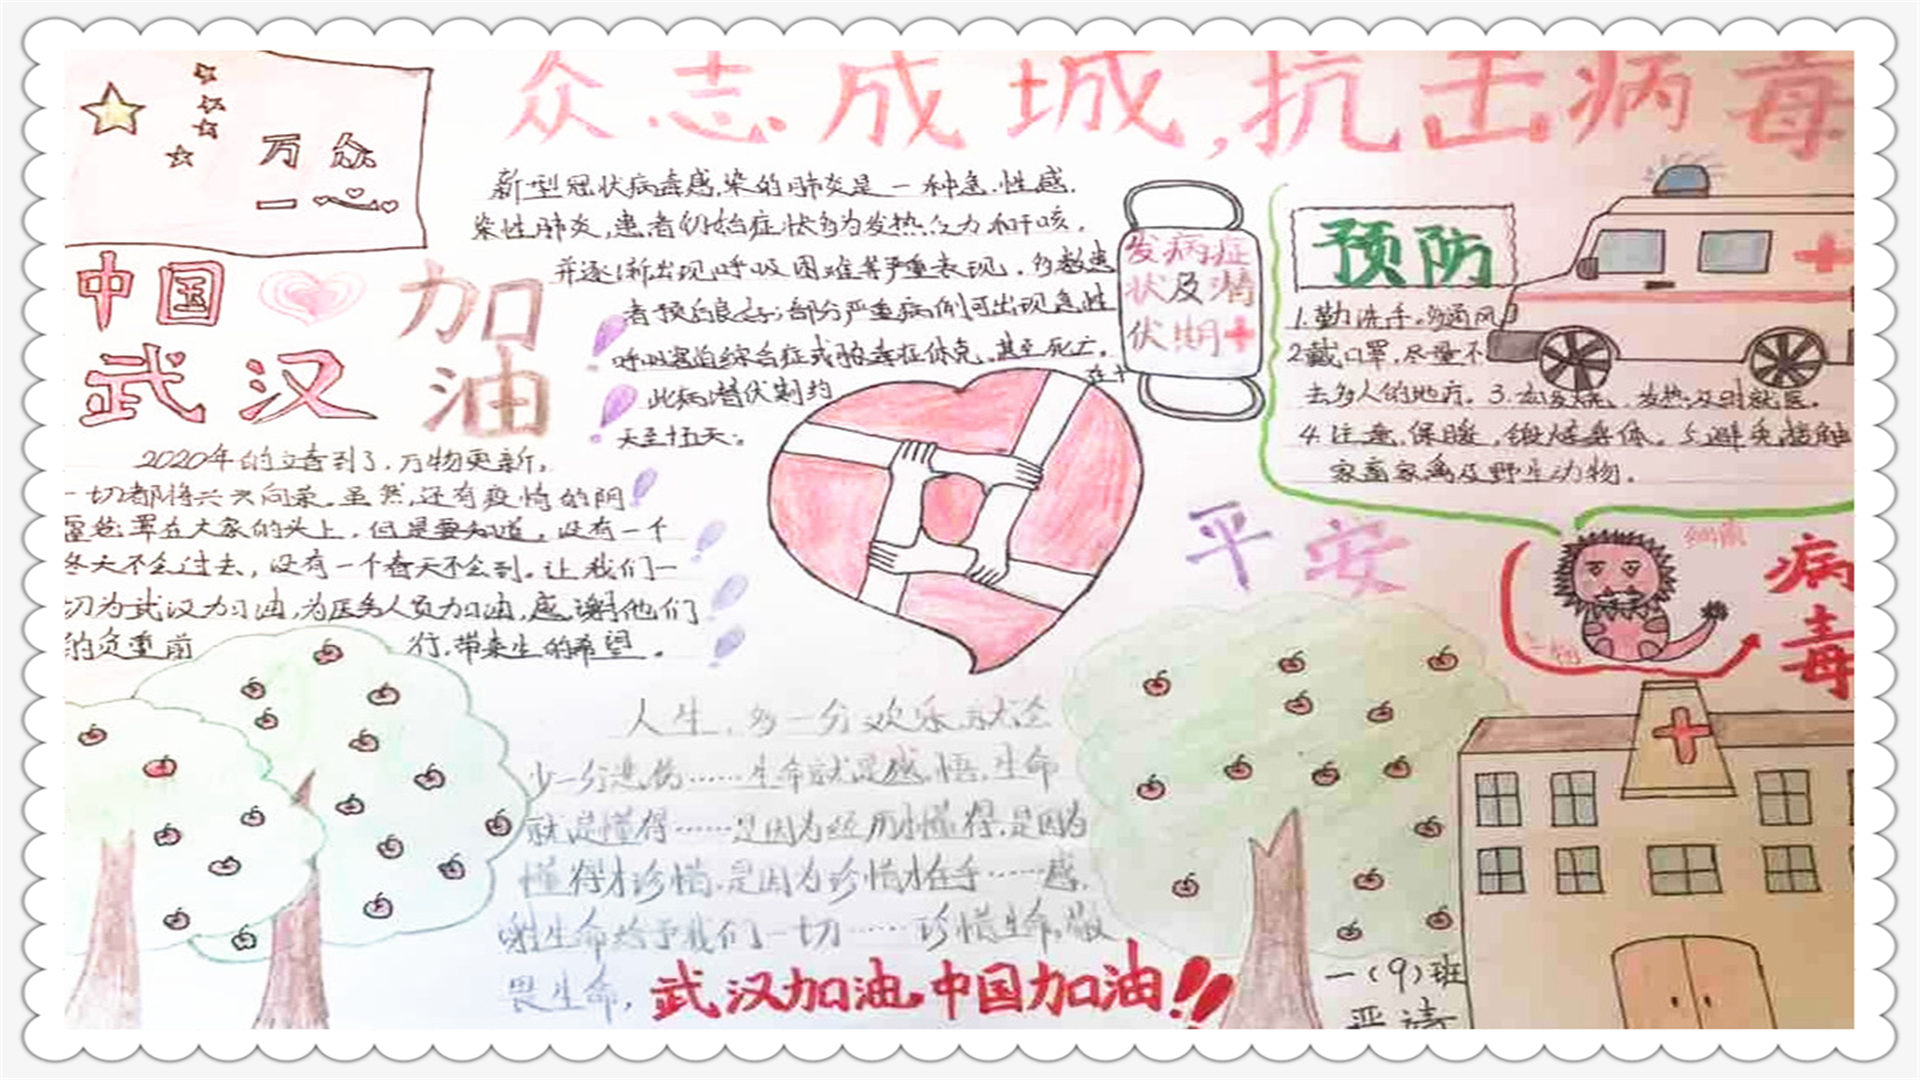 众志成城,抗击病毒
万众
一心
中国 加油
武汉
新型冠状病毒感染的肺炎是一种急性感
染性肺炎,患者初始症状多为发热、乏力和干咳,
并逐渐出现呼吸困难等严重表现。多数患
者预后良好;部分严重病例可出现急性
呼吸窘迫综合症或脓毒症休克,甚至死亡。
此病潜伏期约
在十
天至十五天。
发病症
状及潜
伏期
预防
1.勤洗手。多通风
2戴口罩,尽量不
去多人的地方。3.发热及时就医。
4.注意保暖,锻炼身体。5.避免接触
家畜家禽及野生动物。
2020年的立春到了,万物更新,
一切都将兴兴向荣。虽然,还有疫情的阴
霾笼罩在大家的头上,但是要知道,没有一个
冬天不会过去,没有一个春天不会到。让我们一
切为武汉加油,为医务人员加油,感谢他们
的负重前行,带来生的希望。
平安
细菌
病毒
人生,多一分欢乐,就会
少一分悲伤……生命就是感悟,生命
就是懂得……是因为经历才懂得,是因为
懂得才珍惜,是因为珍惜才在乎……感
谢生命给予我们一切……珍惜生命,敬
畏生命,
武汉加油,中国加油!!
一(9)班